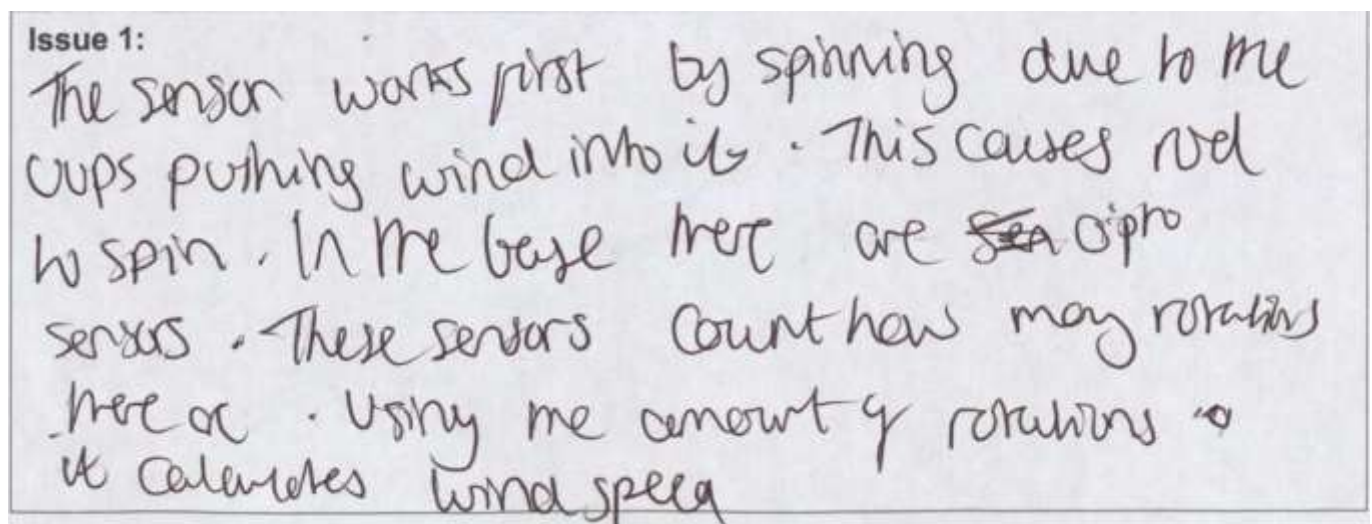 Issue 1:
The sensor works first by spinning due to the
cups pushing wind into it. This causes rod
to spin. In the base there are opto
sensors. These sensors count how many rotations
there are. Using the amount of rotations
it calculates wind speed